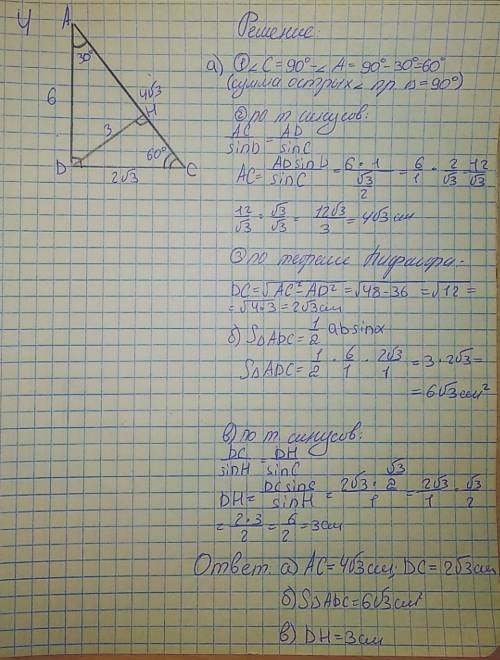 4
A
30°
6
4√3
H
3
60°
D
2√3
C
Решение:
а) ① ∠C = 90° - ∠A = 90° - 30° = 60°
(сумма острых ∠ пр. Δ = 90°)
② по т. синусов:
AC/sinD = AD/sinC
AC = ADsinD/sinC = 6·1/(√3/2) = 6/1 · 2/√3 = 12/√3
12/√3 · √3/√3 = 12√3/3 = 4√3 см
③ по теореме Пифагора:
DC = √AC² - AD² = √48 - 36 = √12 =
= √4·3 = 2√3 см
б) SΔADC = 1/2 ab sinα
SΔADC = 1/2 · 6/1 · 2√3/1 = 3·2√3 =
= 6√3 см²
в) по т. синусов:
DC/sinH = DH/sinC
DH = DCsinC/sinH = 2√3·√3/2/1 = 2√3/1 · √3/2
= 2·3/2 = 6/2 = 3 см
Ответ: а) AC = 4√3 см; DC = 2√3 см
б) SΔADC = 6√3 см²
в) DH = 3 см